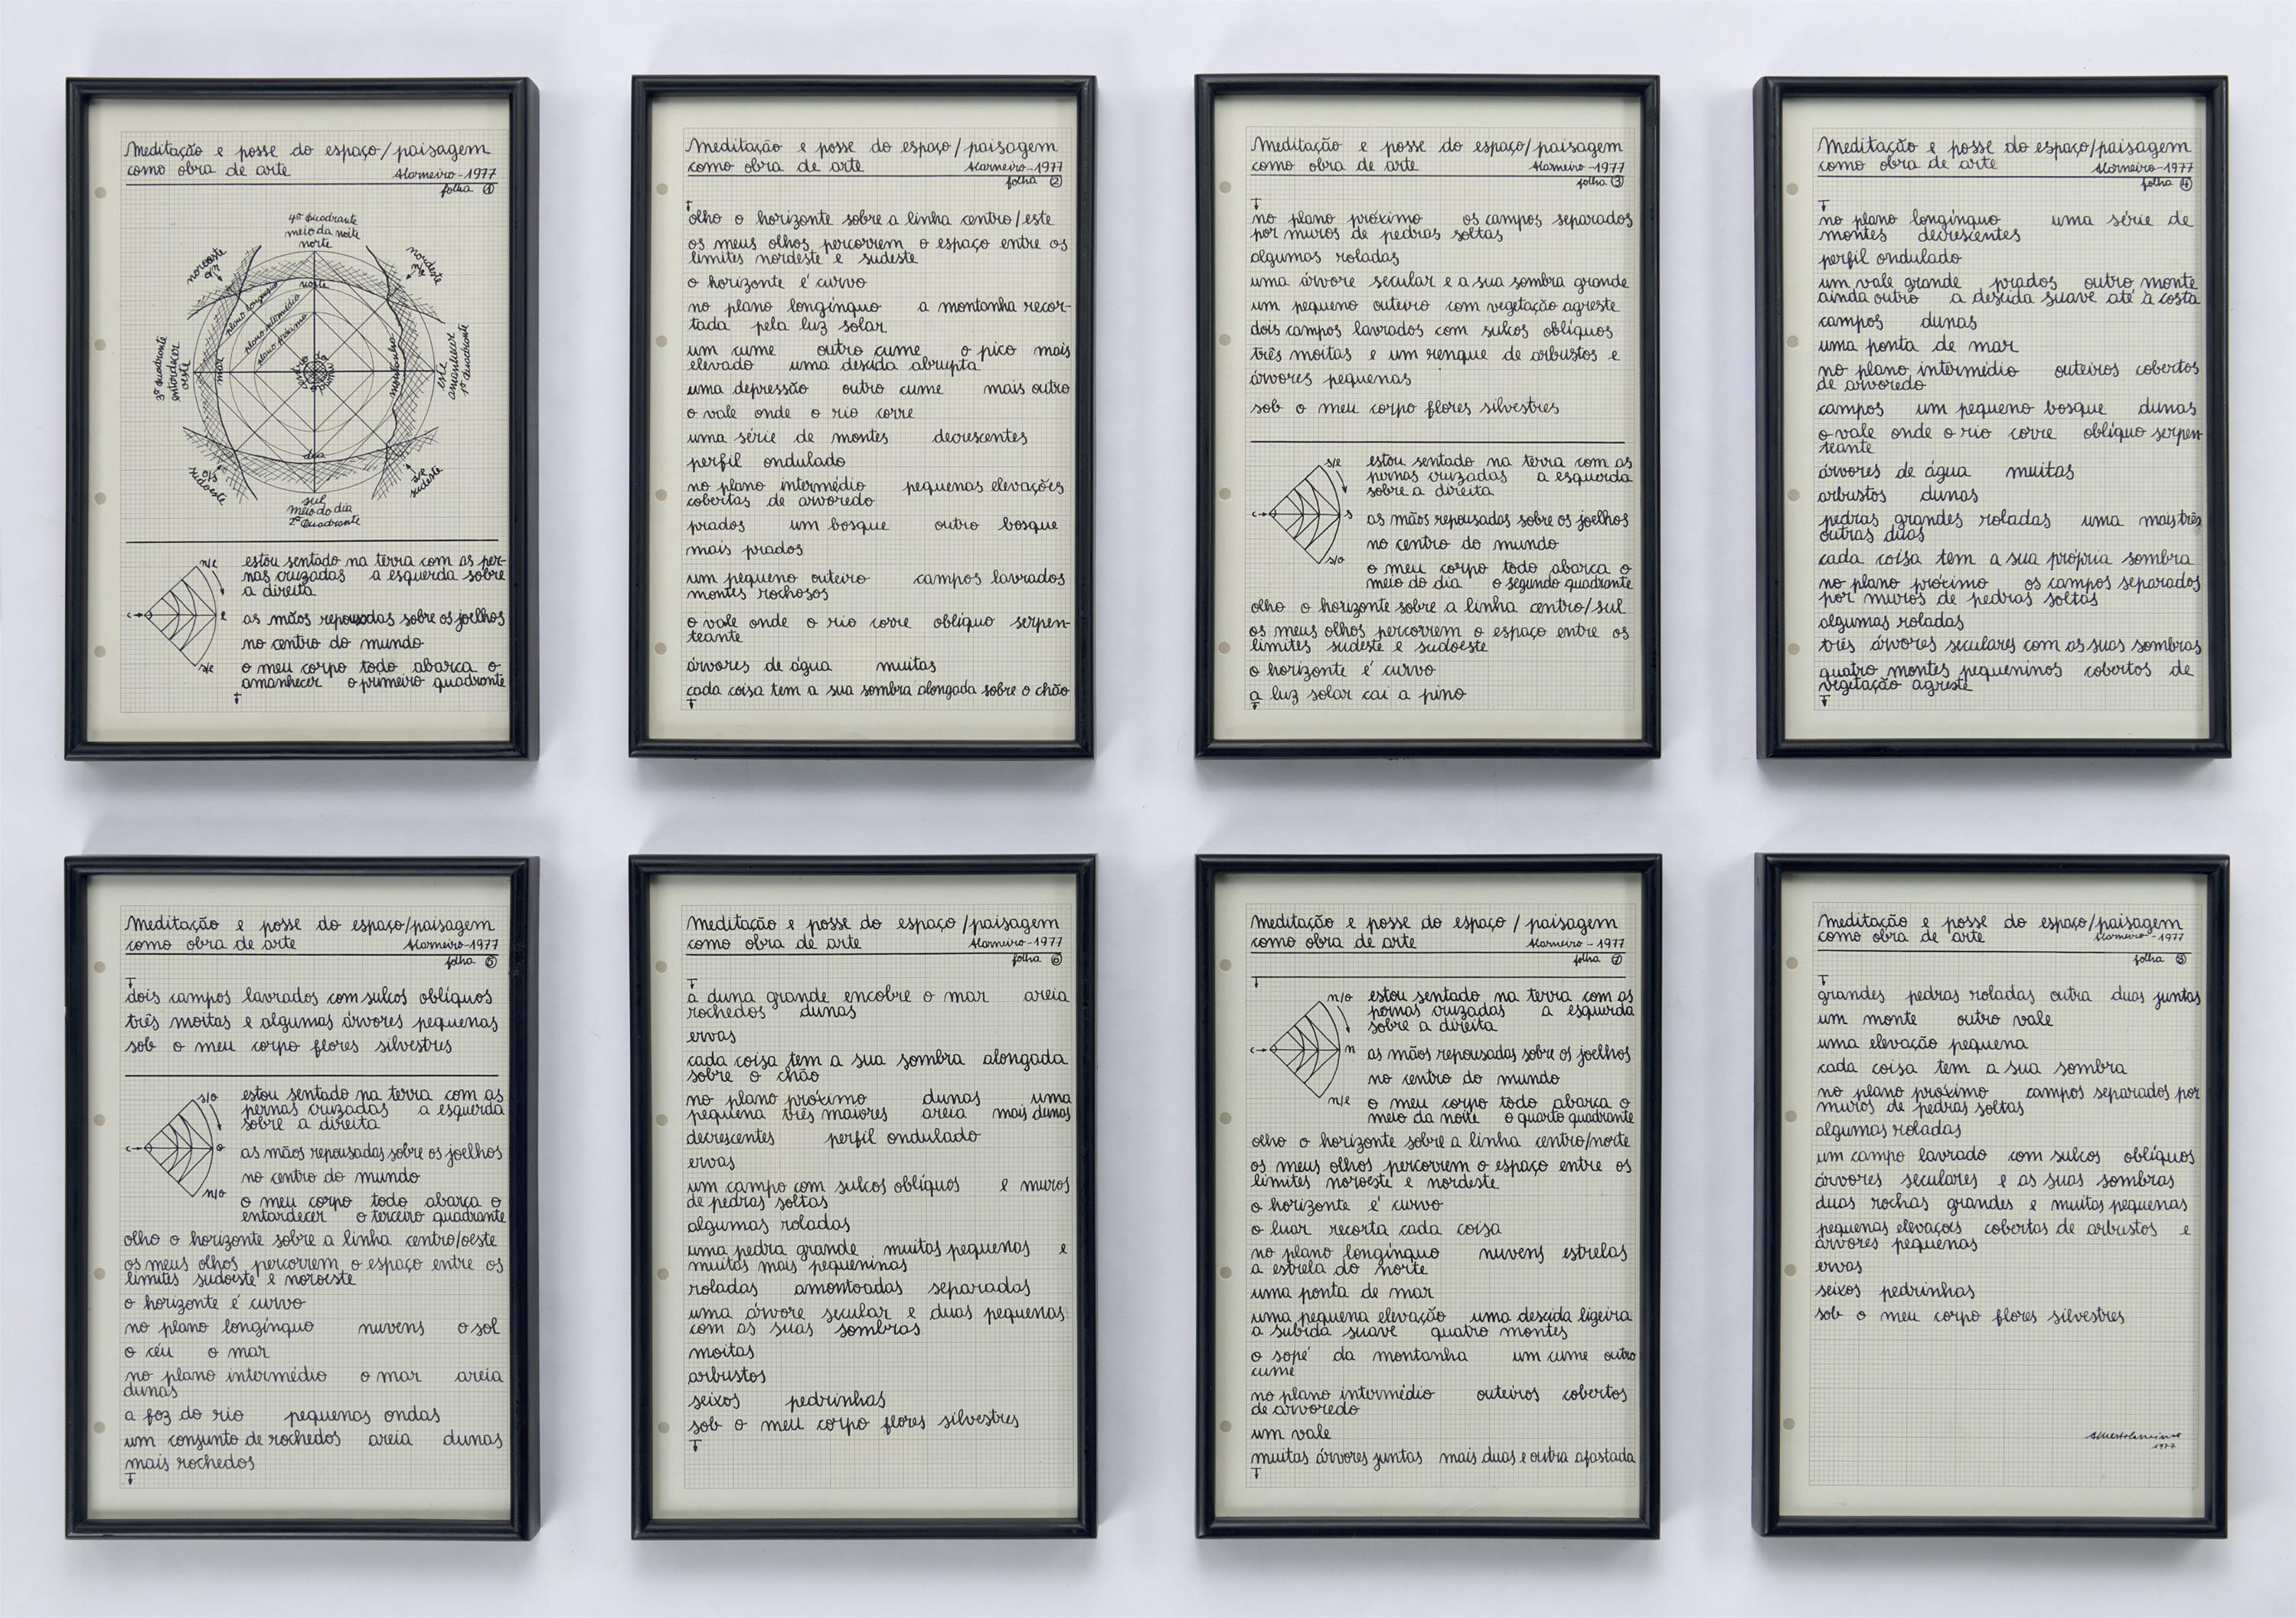 Meditação e posse do espaço/paisagem
como obra de arte
Alarneiro-1977
folha 1
4º Quadrante
meio da noite
norte
noroeste
o/n
nordeste
n/e
noite
plano longínquo
plano intermédio
plano próximo
3º Quadrante
entardecer
oeste
mar
montanha
este
amanhecer
1º Quadrante
dia
o/s
sudoeste
s/e
sudeste
sul
meio do dia
2º Quadrante
n/e
c
e
s/e
estou sentado na terra com as per-
nas cruzadas a esquerda sobre
a direita
as mãos repousadas sobre os joelhos
no centro do mundo
o meu corpo todo abarca o
amanhecer o primeiro quadrante
Meditação e posse do espaço/paisagem
como obra de arte
Alarneiro-1977
folha 2
olho o horizonte sobre a linha centro/este
os meus olhos percorrem o espaço entre os
limites nordeste e sudeste
o horizonte é curvo
no plano longínquo a montanha recor-
tada pela luz solar
um cume outro cume o pico mais
elevado uma descida abrupta
uma depressão outro cume mais outro
o vale onde o rio corre
uma série de montes decrescentes
perfil ondulado
no plano intermédio pequenas elevações
cobertas de arvoredo
prados um bosque outro bosque
mais prados
um pequeno outeiro campos lavrados
montes rochosos
o vale onde o rio corre oblíquo serpen-
teante
árvores de água muitas
cada coisa tem a sua sombra alongada sobre o chão
Meditação e posse do espaço/paisagem
como obra de arte
Alarneiro-1977
folha 3
no plano próximo os campos separados
por muros de pedras soltas
algumas roladas
uma árvore secular e a sua sombra grande
um pequeno outeiro com vegetação agreste
dois campos lavrados com sulcos oblíquos
três moitas e um renque de arbustos e
árvores pequenas
sob o meu corpo flores silvestres
s/e
c
s
s/o
estou sentado na terra com as
pernas cruzadas a esquerda
sobre a direita
as mãos repousadas sobre os joelhos
no centro do mundo
o meu corpo todo abarca o
meio do dia o segundo quadrante
olho o horizonte sobre a linha centro/sul
os meus olhos percorrem o espaço entre os
limites sudeste e sudoeste
o horizonte é curvo
a luz solar cai a pino
Meditação e posse do espaço/paisagem
como obra de arte
Alarneiro-1977
folha 4
no plano longínquo uma série de
montes decrescentes
perfil ondulado
um vale grande prados outro monte
ainda outro a descida suave até à costa
campos dunas
uma ponta de mar
no plano intermédio outeiros cobertos
de arvoredo
campos um pequeno bosque dunas
o vale onde o rio corre oblíquo serpen-
teante
árvores de água muitas
arbustos dunas
pedras grandes roladas uma mais três
outras duas
cada coisa tem a sua própria sombra
no plano próximo os campos separados
por muros de pedras soltas
algumas roladas
três árvores seculares com as suas sombras
quatro montes pequeninos cobertos de
vegetação agreste
Meditação e posse do espaço/paisagem
como obra de arte
Alarneiro-1977
folha 5
dois campos lavrados com sulcos oblíquos
três moitas e algumas árvores pequenas
sob o meu corpo flores silvestres
s/o
c
o
n/o
estou sentado na terra com as
pernas cruzadas a esquerda
sobre a direita
as mãos repousadas sobre os joelhos
no centro do mundo
o meu corpo todo abarca o
entardecer o terceiro quadrante
olho o horizonte sobre a linha centro/oeste
os meus olhos percorrem o espaço entre os
limites sudoeste e noroeste
o horizonte é curvo
no plano longínquo nuvens o sol
o céu o mar
no plano intermédio o mar areia
dunas
a foz do rio pequenas ondas
um conjunto de rochedos areia dunas
mais rochedos
Meditação e posse do espaço/paisagem
como obra de arte
Alarneiro-1977
folha 6
a duna grande encobre o mar areia
rochedos dunas
ervas
cada coisa tem a sua sombra alongada
sobre o chão
no plano próximo dunas uma
pequena três maiores areia mais dunas
decrescentes perfil ondulado
ervas
um campo com sulcos oblíquos e muros
de pedras soltas
algumas roladas
uma pedra grande muitas pequenas e
muitas mais pequeninas
roladas amontoadas separadas
uma árvore secular e duas pequenas
com as suas sombras
moitas
arbustos
seixos pedrinhas
sob o meu corpo flores silvestres
Meditação e posse do espaço/paisagem
como obra de arte
Alarneiro-1977
folha 7
n/o
c
n
n/e
estou sentado na terra com as
pernas cruzadas a esquerda
sobre a direita
as mãos repousadas sobre os joelhos
no centro do mundo
o meu corpo todo abarca o
meio da noite o quarto quadrante
olho o horizonte sobre a linha centro/norte
os meus olhos percorrem o espaço entre os
limites noroeste e nordeste
o horizonte é curvo
o luar recorta cada coisa
no plano longínquo nuvens estrelas
a estrela do norte
uma ponta de mar
uma pequena elevação uma descida ligeira
a subida suave quatro montes
o sopé da montanha um cume outro
cume
no plano intermédio outeiros cobertos
de arvoredo
um vale
muitas árvores juntas mais duas e outra afastada
Meditação e posse do espaço/paisagem
como obra de arte
Alarneiro-1977
folha 8
grandes pedras roladas outra duas juntas
um monte outro vale
uma elevação pequena
cada coisa tem a sua sombra
no plano próximo campos separados por
muros de pedras soltas
algumas roladas
um campo lavrado com sulcos oblíquos
árvores seculares e as suas sombras
duas rochas grandes e muitas pequenas
pequenas elevaçois cobertas de arbustos e
árvores pequenas
ervas
seixos pedrinhas
sob o meu corpo flores silvestres
1977